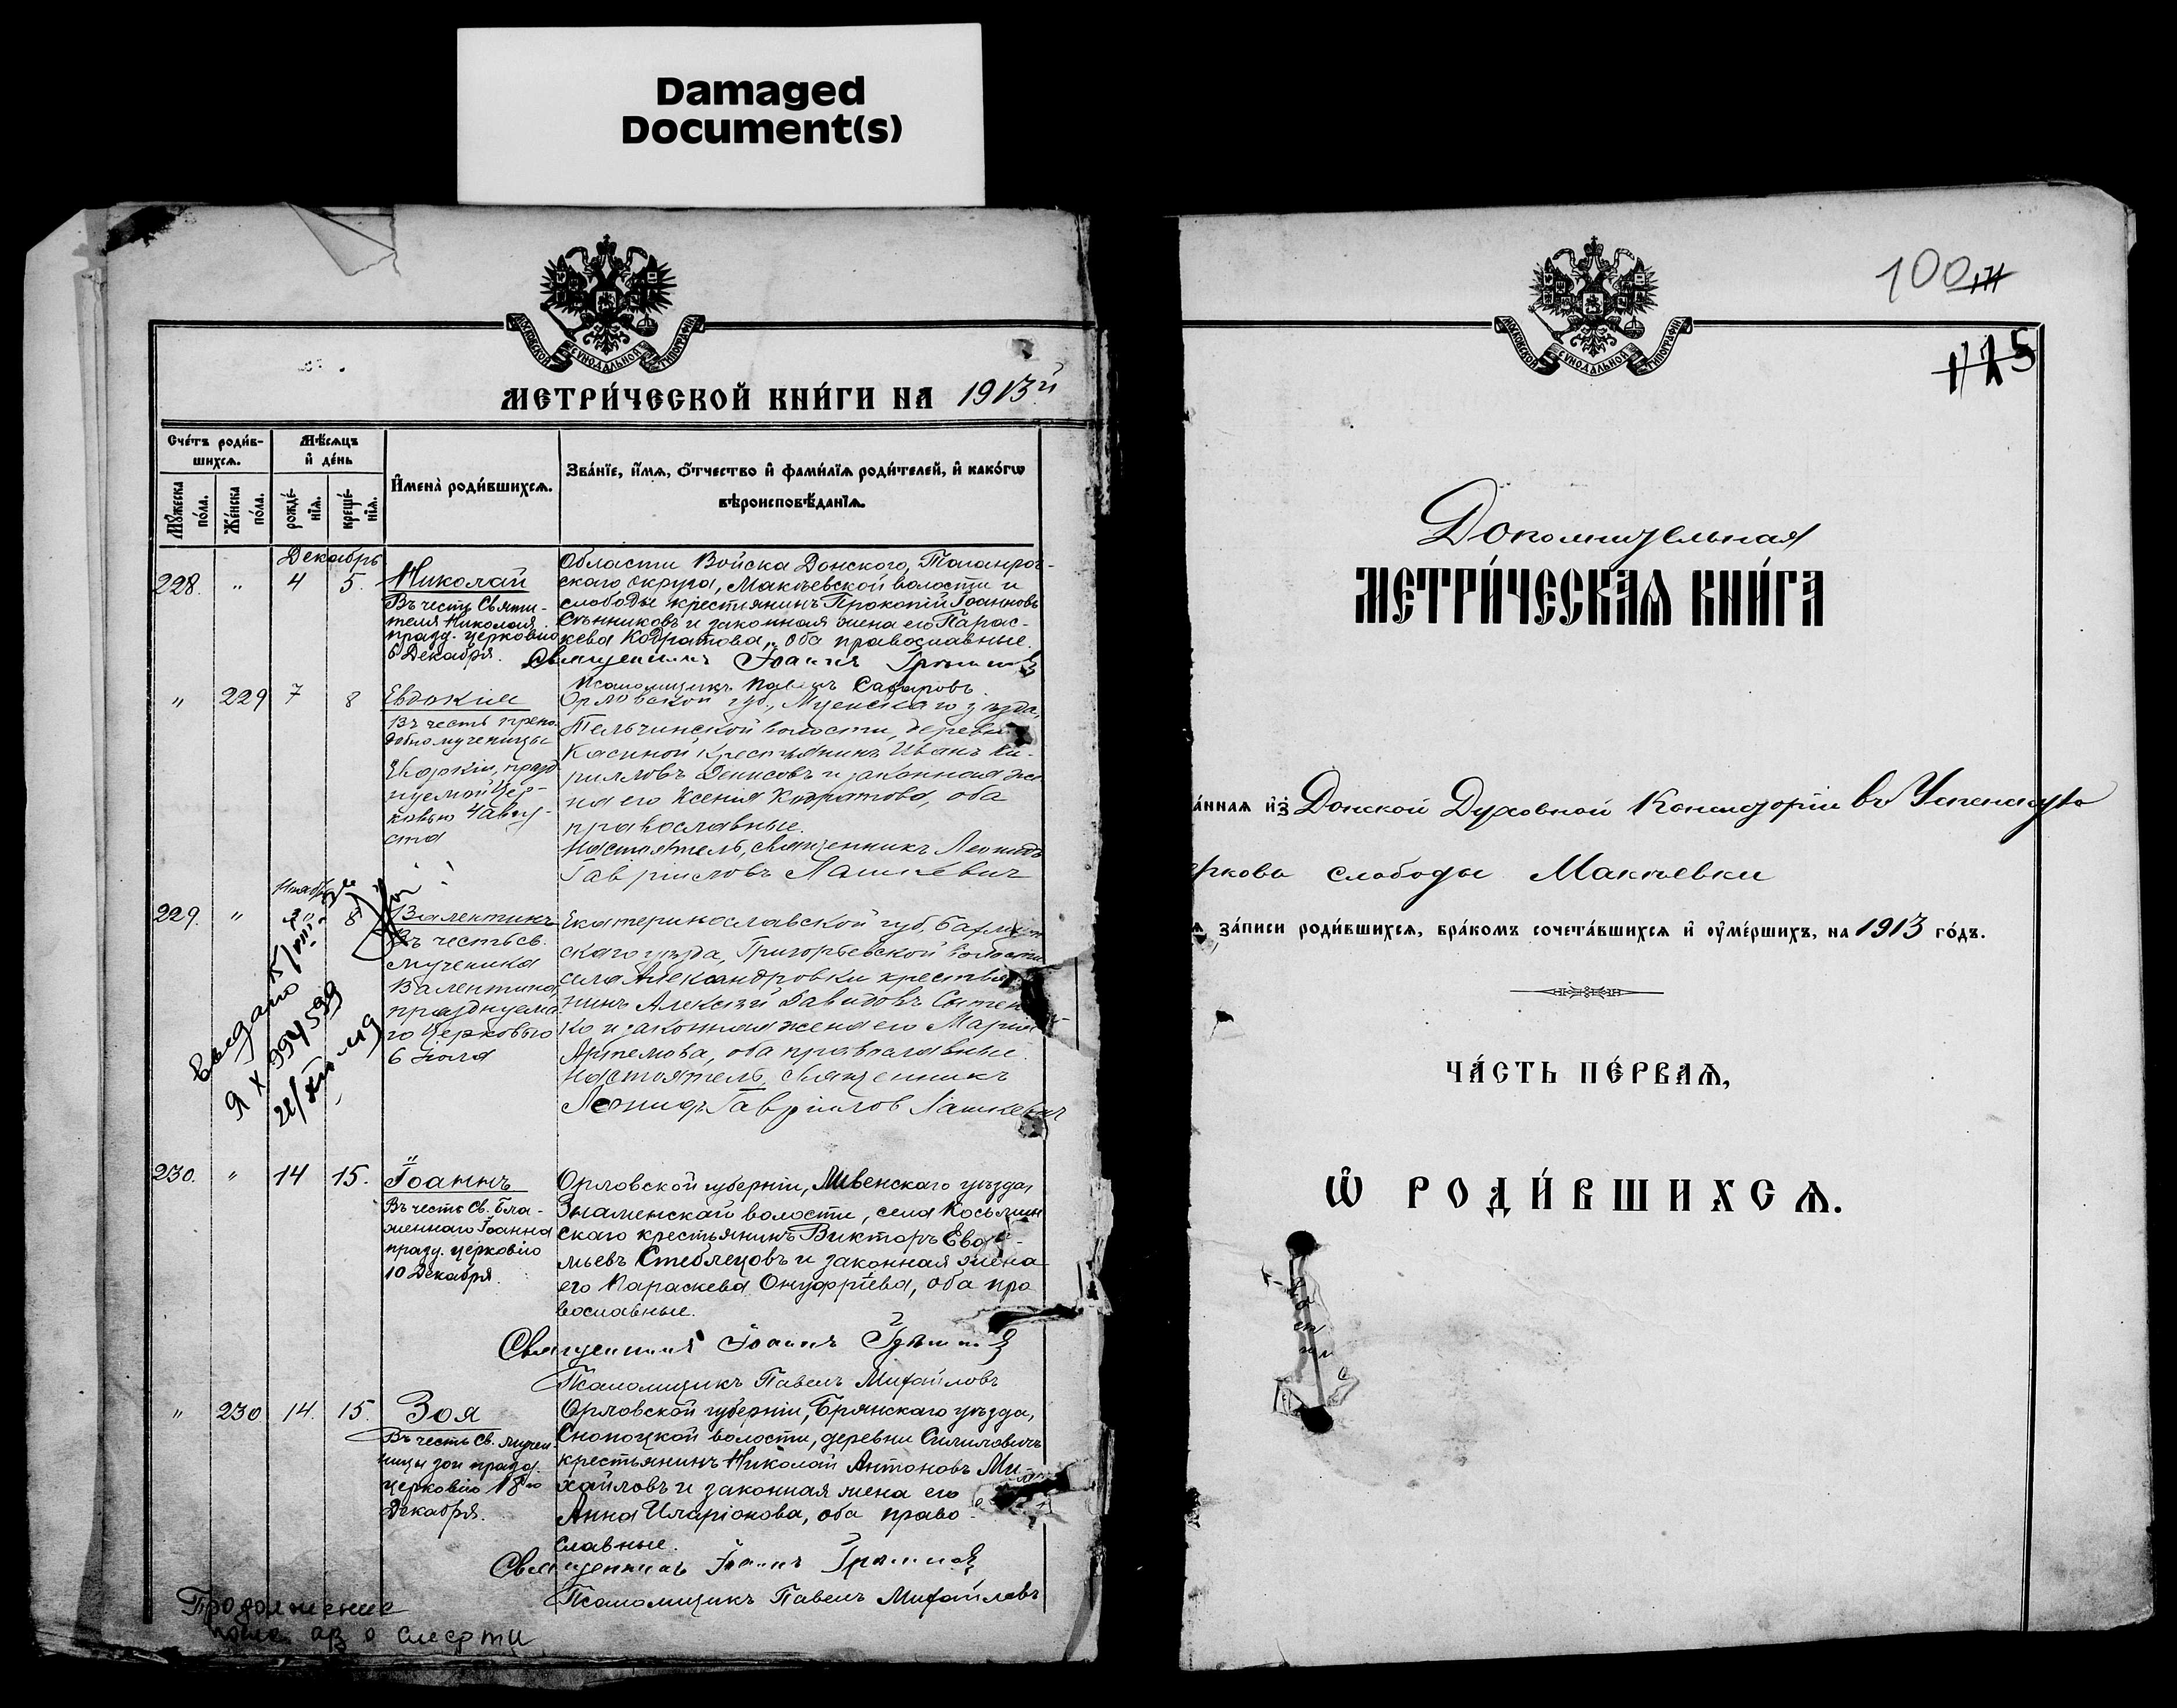 Damaged
Document(s)
МОСКОВСКОЙ СѴНОДАЛЬНОЙ ТИПОГРАФІИ
МЕТРИ́ЧЕСКОЙ КНИ́ГИ НА 1913й
Сче́тъ роди́в-
шихсѧ.
Мѣ́сѧцъ
и҆ де́нь
И҆мена̀ роди́вшихсѧ.
Зва́нїе, и҆́мѧ, ѻ҆́тчество и҆ фами́лїѧ роди́телей, и҆ како́гѡ
вѣроисповѣ́данїѧ.
Мꙋ́жеска
по́ла.
Же́нска
по́ла.
рожде́-
нїѧ.
креще́-
нїѧ.
Декабрь
228. " 4 5. Николай
Въ честь Святи-
теля Николая
празд. церковію
6 Декабря.
Области Войска Донского, Таганрог-
скаго округа, Макѣевской волости и
слободы крестьянинъ Прокопій Іоанновъ
и законная жена его Парас-
кева Кодратова, оба православные.
Священникъ Іоаннъ
Псаломщикъ Павелъ
" 229 7 8 Евдокія
Въ честь препо-
добномученицы
Евдокіи, празд-
нуемой Цер-
ковью 4 авгу-
ста
Орловской губ., Мценскаго уѣзда,
Тельчинской волости, деревни
Касиной крестьянинъ Иванъ Ки-
рилловъ Денисовъ и законная же-
на его Ксенія Кодратова, оба
православные.
Настоятель, священникъ Леонидъ
Гавріиловъ Лашкевич
Ноября
229. " 8 Валентинъ
Въ честь св.
мученика
Валентина,
празднуема-
го Церковью
6 іюля
Екатеринославской губ., Бахмут-
скаго уѣзда, Григорьевской волости
села Александровки крестья-
нинъ Алексѣй Давидовъ
ко и законная жена его Марія
Артемова, оба православные.
Настоятель, священникъ
Леонидъ Гавріилов Лашкевич
выдано
ЯХ 994599
230. " 14 15. Іоаннъ
Въ честь Св. Бла-
женнаго Іоанна
празд. церковію
10 Декабря.
Орловской губерніи, Ливенскаго уѣзда,
Знаменской волости, села Косьмин
скаго крестьянинъ Викторъ
Стеблецовъ и законная жена
его Параскева Онуфріева, оба пра
вославные.
Священникъ Іоаннъ
Псаломщикъ Павелъ Михайловъ
" 230 14. 15. Зоя
Въ честь Св. мучен-
ницы Зои празд.
церковію 18го
Декабря.
Орловской губерніи, Брянскаго уѣзда,
Снопоцкой волости, деревни
крестьянинъ Николай Антоновъ Ми-
хайловъ и законная жена его
Анна Иларіонова, оба право-
славные.
Священникъ Іоаннъ
Псаломщикъ Павелъ Михайловъ
Продолжение
о смерти
МОСКОВСКОЙ СѴНОДАЛЬНОЙ ТИПОГРАФІИ
100
Дополнительная
МЕТРИ́ЧЕСКАѦ КНИ́ГА
а́ннаѧ и҆з̾ Донской Духовной Консисторіи въ Успенскую
ерковь слободы Макѣевки
ѧ за́писи роди́вшихсѧ, бра́комъ сочета́вшихсѧ и҆ ᲂу҆ме́ршихъ, на 1913 го́дъ.
ЧА́СТЬ ПЕ́РВАѦ,
Ѡ҆ РОДИ́ВШИХСѦ.